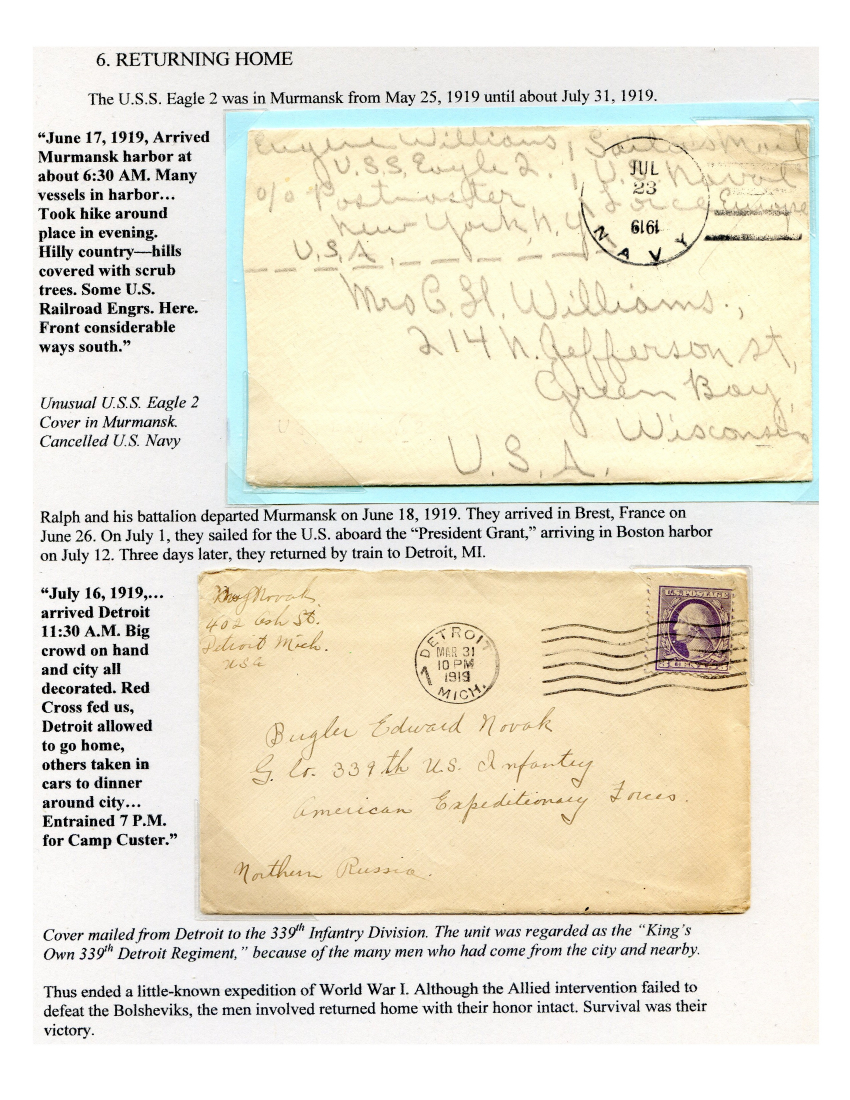 6. RETURNING HOME
The U.S.S. Eagle 2 was in Murmansk from May 25, 1919 until about July 31, 1919.
“June 17, 1919, Arrived
Murmansk harbor at
about 6:30 AM. Many
vessels in harbor…
Took hike around
place in evening.
Hilly country—hills
covered with scrub
trees. Some U.S.
Railroad Engrs. Here.
Front considerable
ways south.”
Unusual U.S.S. Eagle 2
Cover in Murmansk.
Cancelled U.S. Navy
Eugene Williams, Sailors Mail
U.S.S. Eagle 2., U.S. Naval
c/o Postmaster, Force Europe
New York, N.Y.
U.S.A.
JUL
23
1919
NAVY
Mrs C. H. Williams.,
214 N. Jefferson st,
Green Bay,
Wisconsin
U.S.A.
Ralph and his battalion departed Murmansk on June 18, 1919. They arrived in Brest, France on
June 26. On July 1, they sailed for the U.S. aboard the “President Grant,” arriving in Boston harbor
on July 12. Three days later, they returned by train to Detroit, MI.
“July 16, 1919,…
arrived Detroit
11:30 A.M. Big
crowd on hand
and city all
decorated. Red
Cross fed us,
Detroit allowed
to go home,
others taken in
cars to dinner
around city…
Entrained 7 P.M.
for Camp Custer.”
Novak
402 Ash St.
Detroit Mich.
USA
DETROIT
MAR 31
10 PM
1919
1 MICH.
U.S. POSTAGE
Bugler Edward Novak
G. Co. 339th U.S. Infantry
American Expeditionary Forces.
Northern Russia.
Cover mailed from Detroit to the 339th Infantry Division. The unit was regarded as the “King’s
Own 339th Detroit Regiment,” because of the many men who had come from the city and nearby.
Thus ended a little-known expedition of World War I. Although the Allied intervention failed to
defeat the Bolsheviks, the men involved returned home with their honor intact. Survival was their
victory.